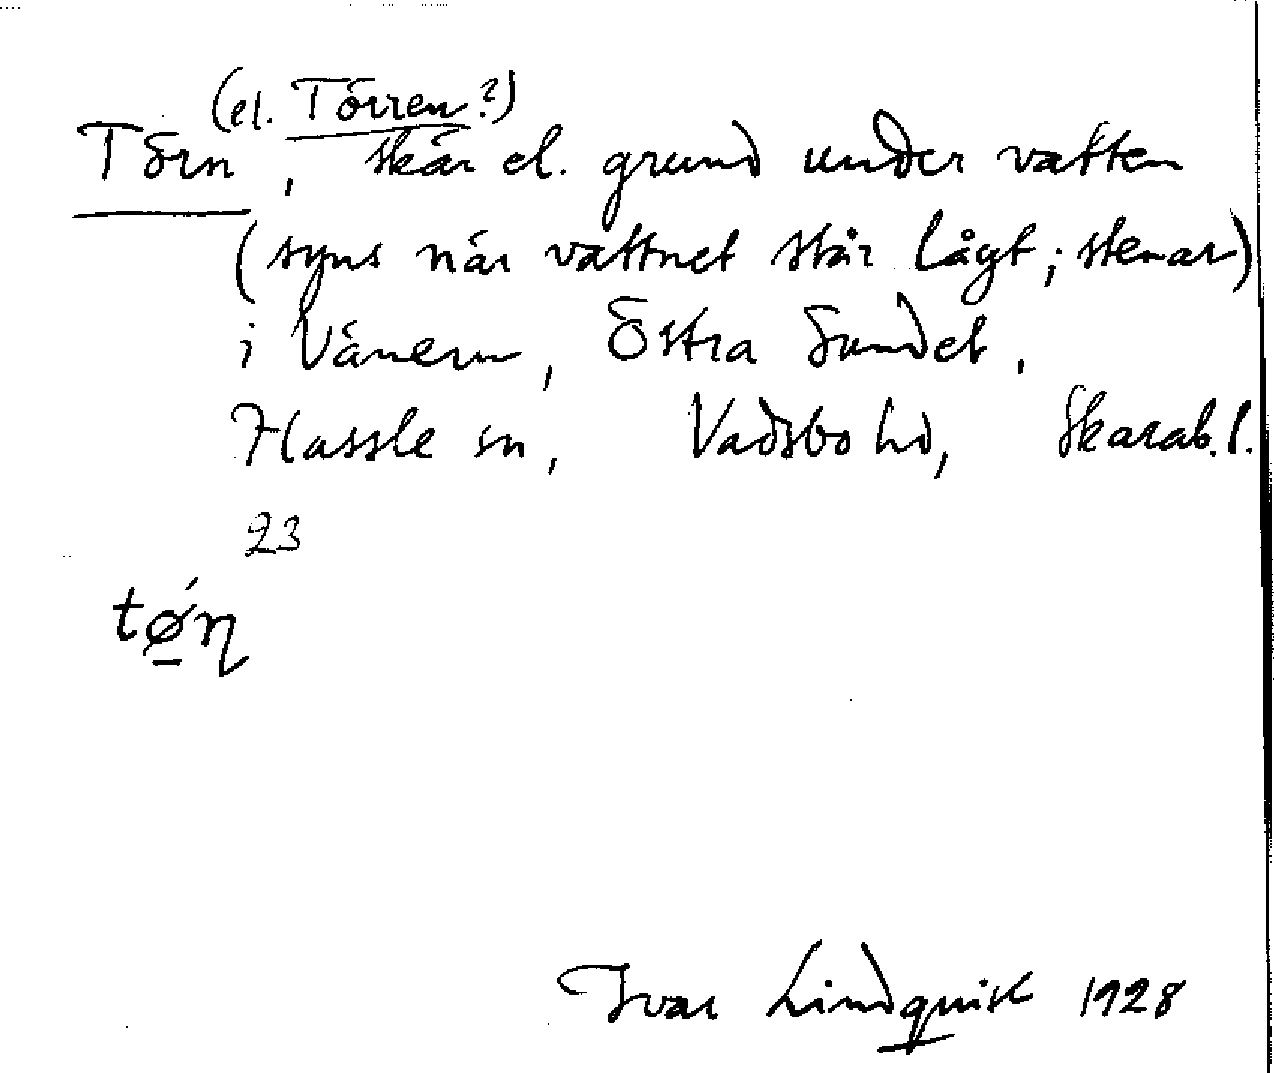 (el. Törren?)
Törn, skär el. grund under vatten
(syns när vattnet står lågt; stenar)
i Vänern, Östra Sundet.
Hassle sn, Vadsbo hd, Skarab. l.
23
tǿ̱ɳ
Ivar Lindquist 1928